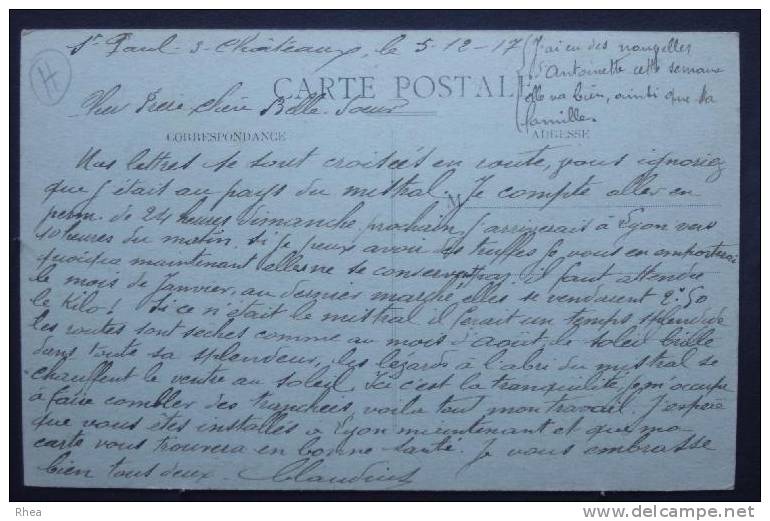 St Paul-3-Châteaux, le 5-12-17
J'ai eu des nouvelles
d'Antoinette cette semaine
elle va bien, ainsi que sa
famille.
H
CARTE POSTALE
Cher Frère Chère Belle-Soeur
CORRESPONDANCE
ADRESSE
M
Nos lettres se sont croisées en route, vous ignoriez
que j'étais au pays du mistral. Je compte aller en
perm. de 24 heures dimanche prochain j'arriverais à Lyon vers
10 heures du matin, si je peux avoir des truffes je vous en emporterai
quoique maintenant elles ne se conservent pas il faut attendre
le mois de Janvier, au dernier marché elles se vendaient 2f 50
le Kilo! Si ce n'était le mistral il ferait un temps splendide
les routes sont seches comme au mois d'août le soleil brille
dans toute sa splendeur, les lézards à l'abri du mistral se
chauffent le ventre au soleil. Ici c'est la tranquilité, je m'occupe
à faire combler des tranchées, voila tout mon travail. J'espère
que vous êtes installés à Lyon maintenant et que ma
carte vous trouvera en bonne santé. Je vous embrasse
bien tous deux. Claudius
Rhea
www.delcampe.net